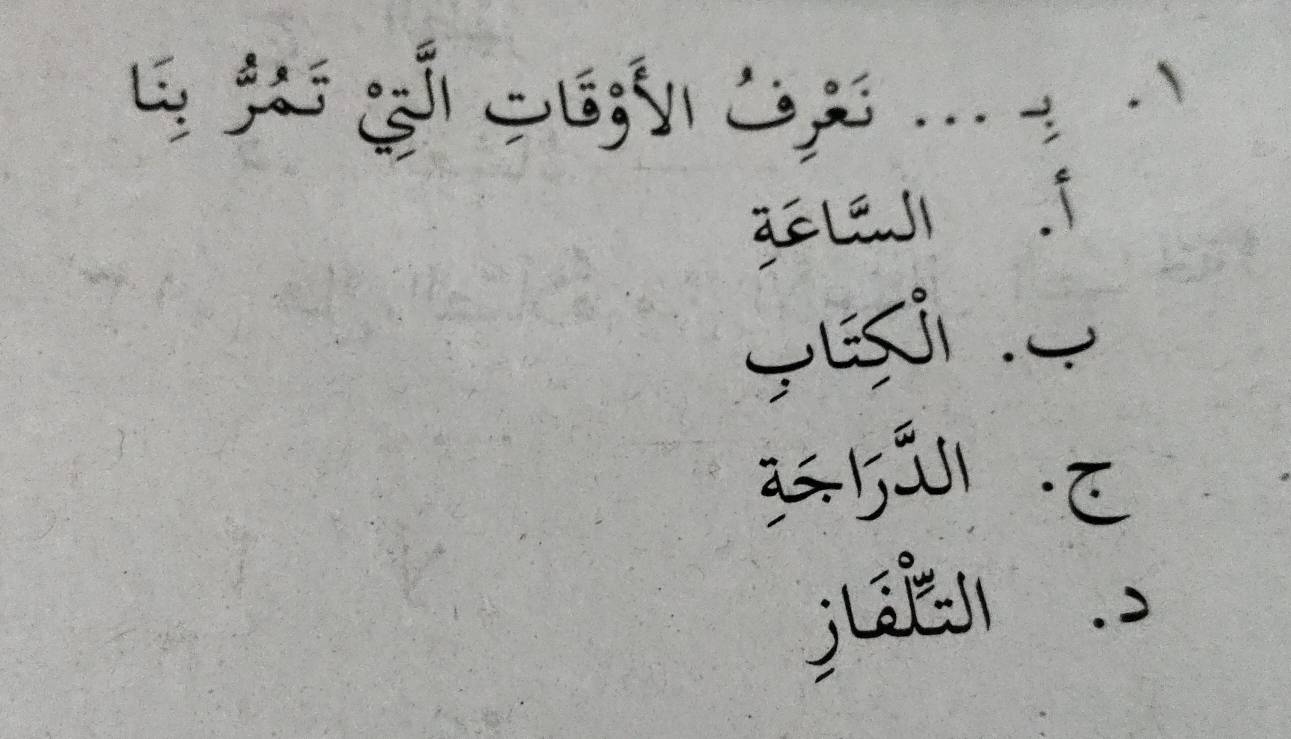 ١. بِـ ... نَعْرِفُ الأَوْقَاتِ الَّتِيْ تَمُرُّ بِنَا
أ. السَّاعَةِ
ب. الْكِتَابِ
ج. الدَّرَاجَةِ
د. التِّلْفَازِ